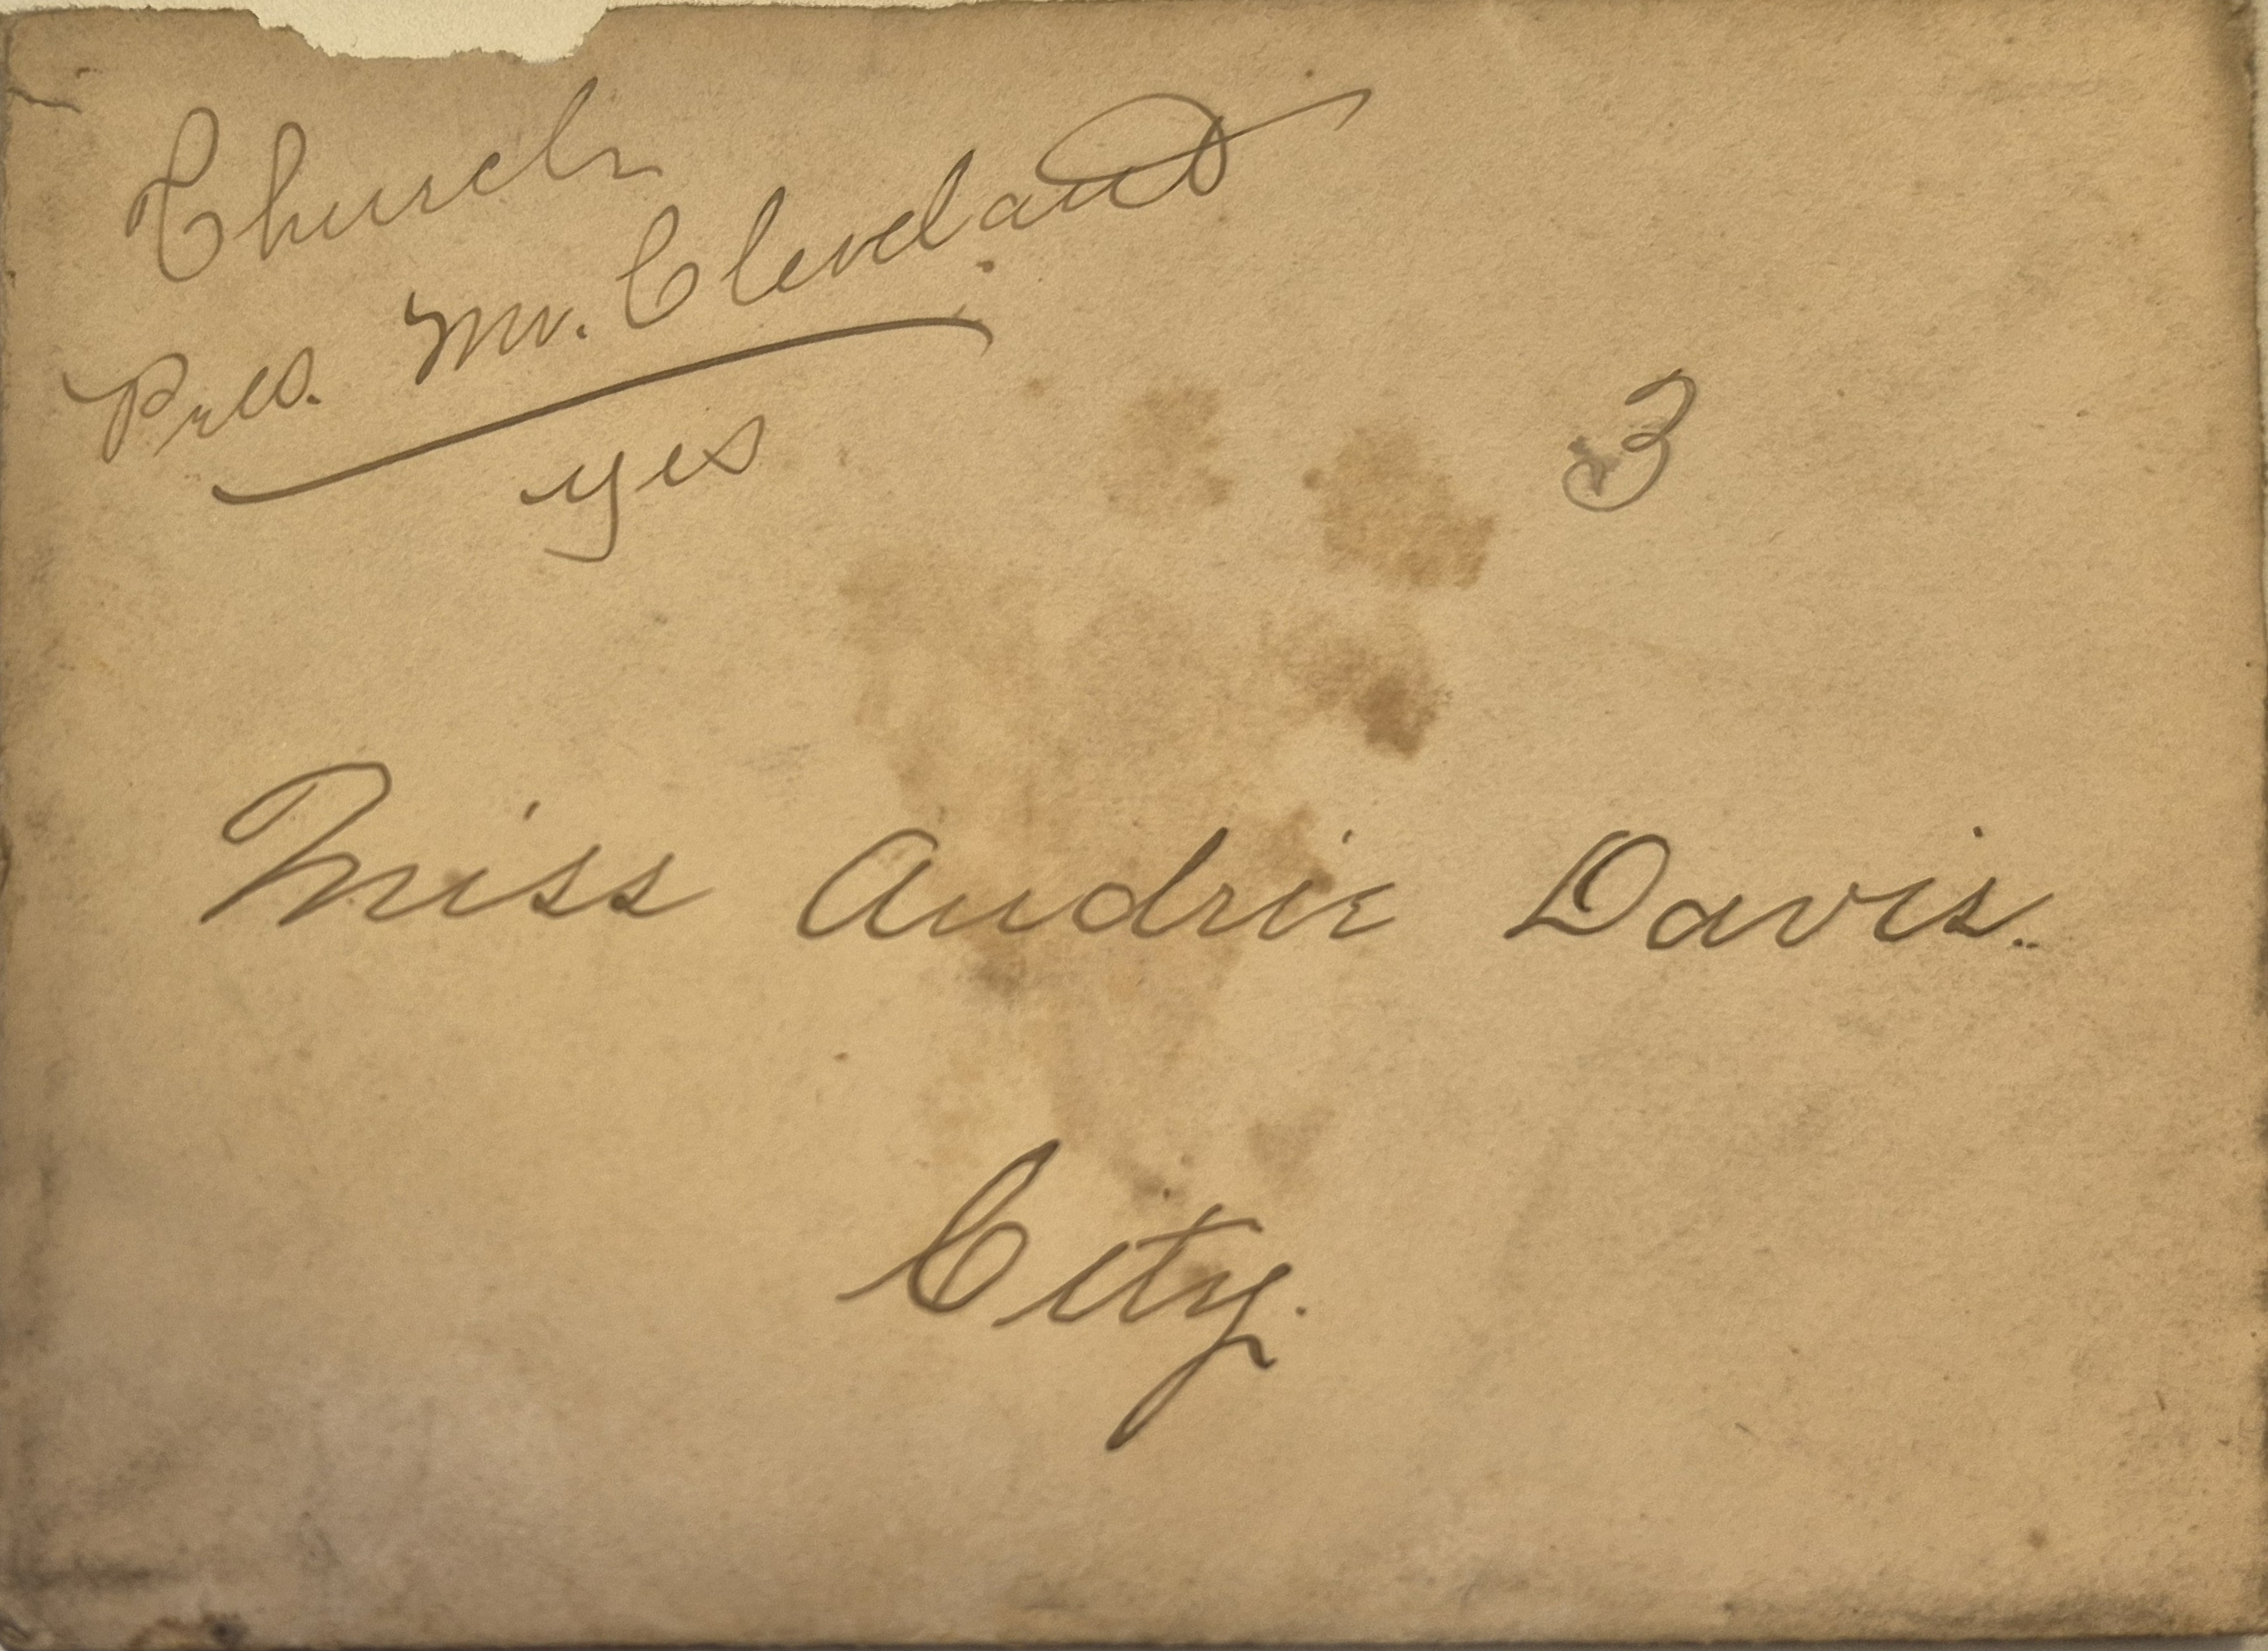 Church
Pres. Mr. Cleveland
yes
3
Miss Audrie Davis.
City.